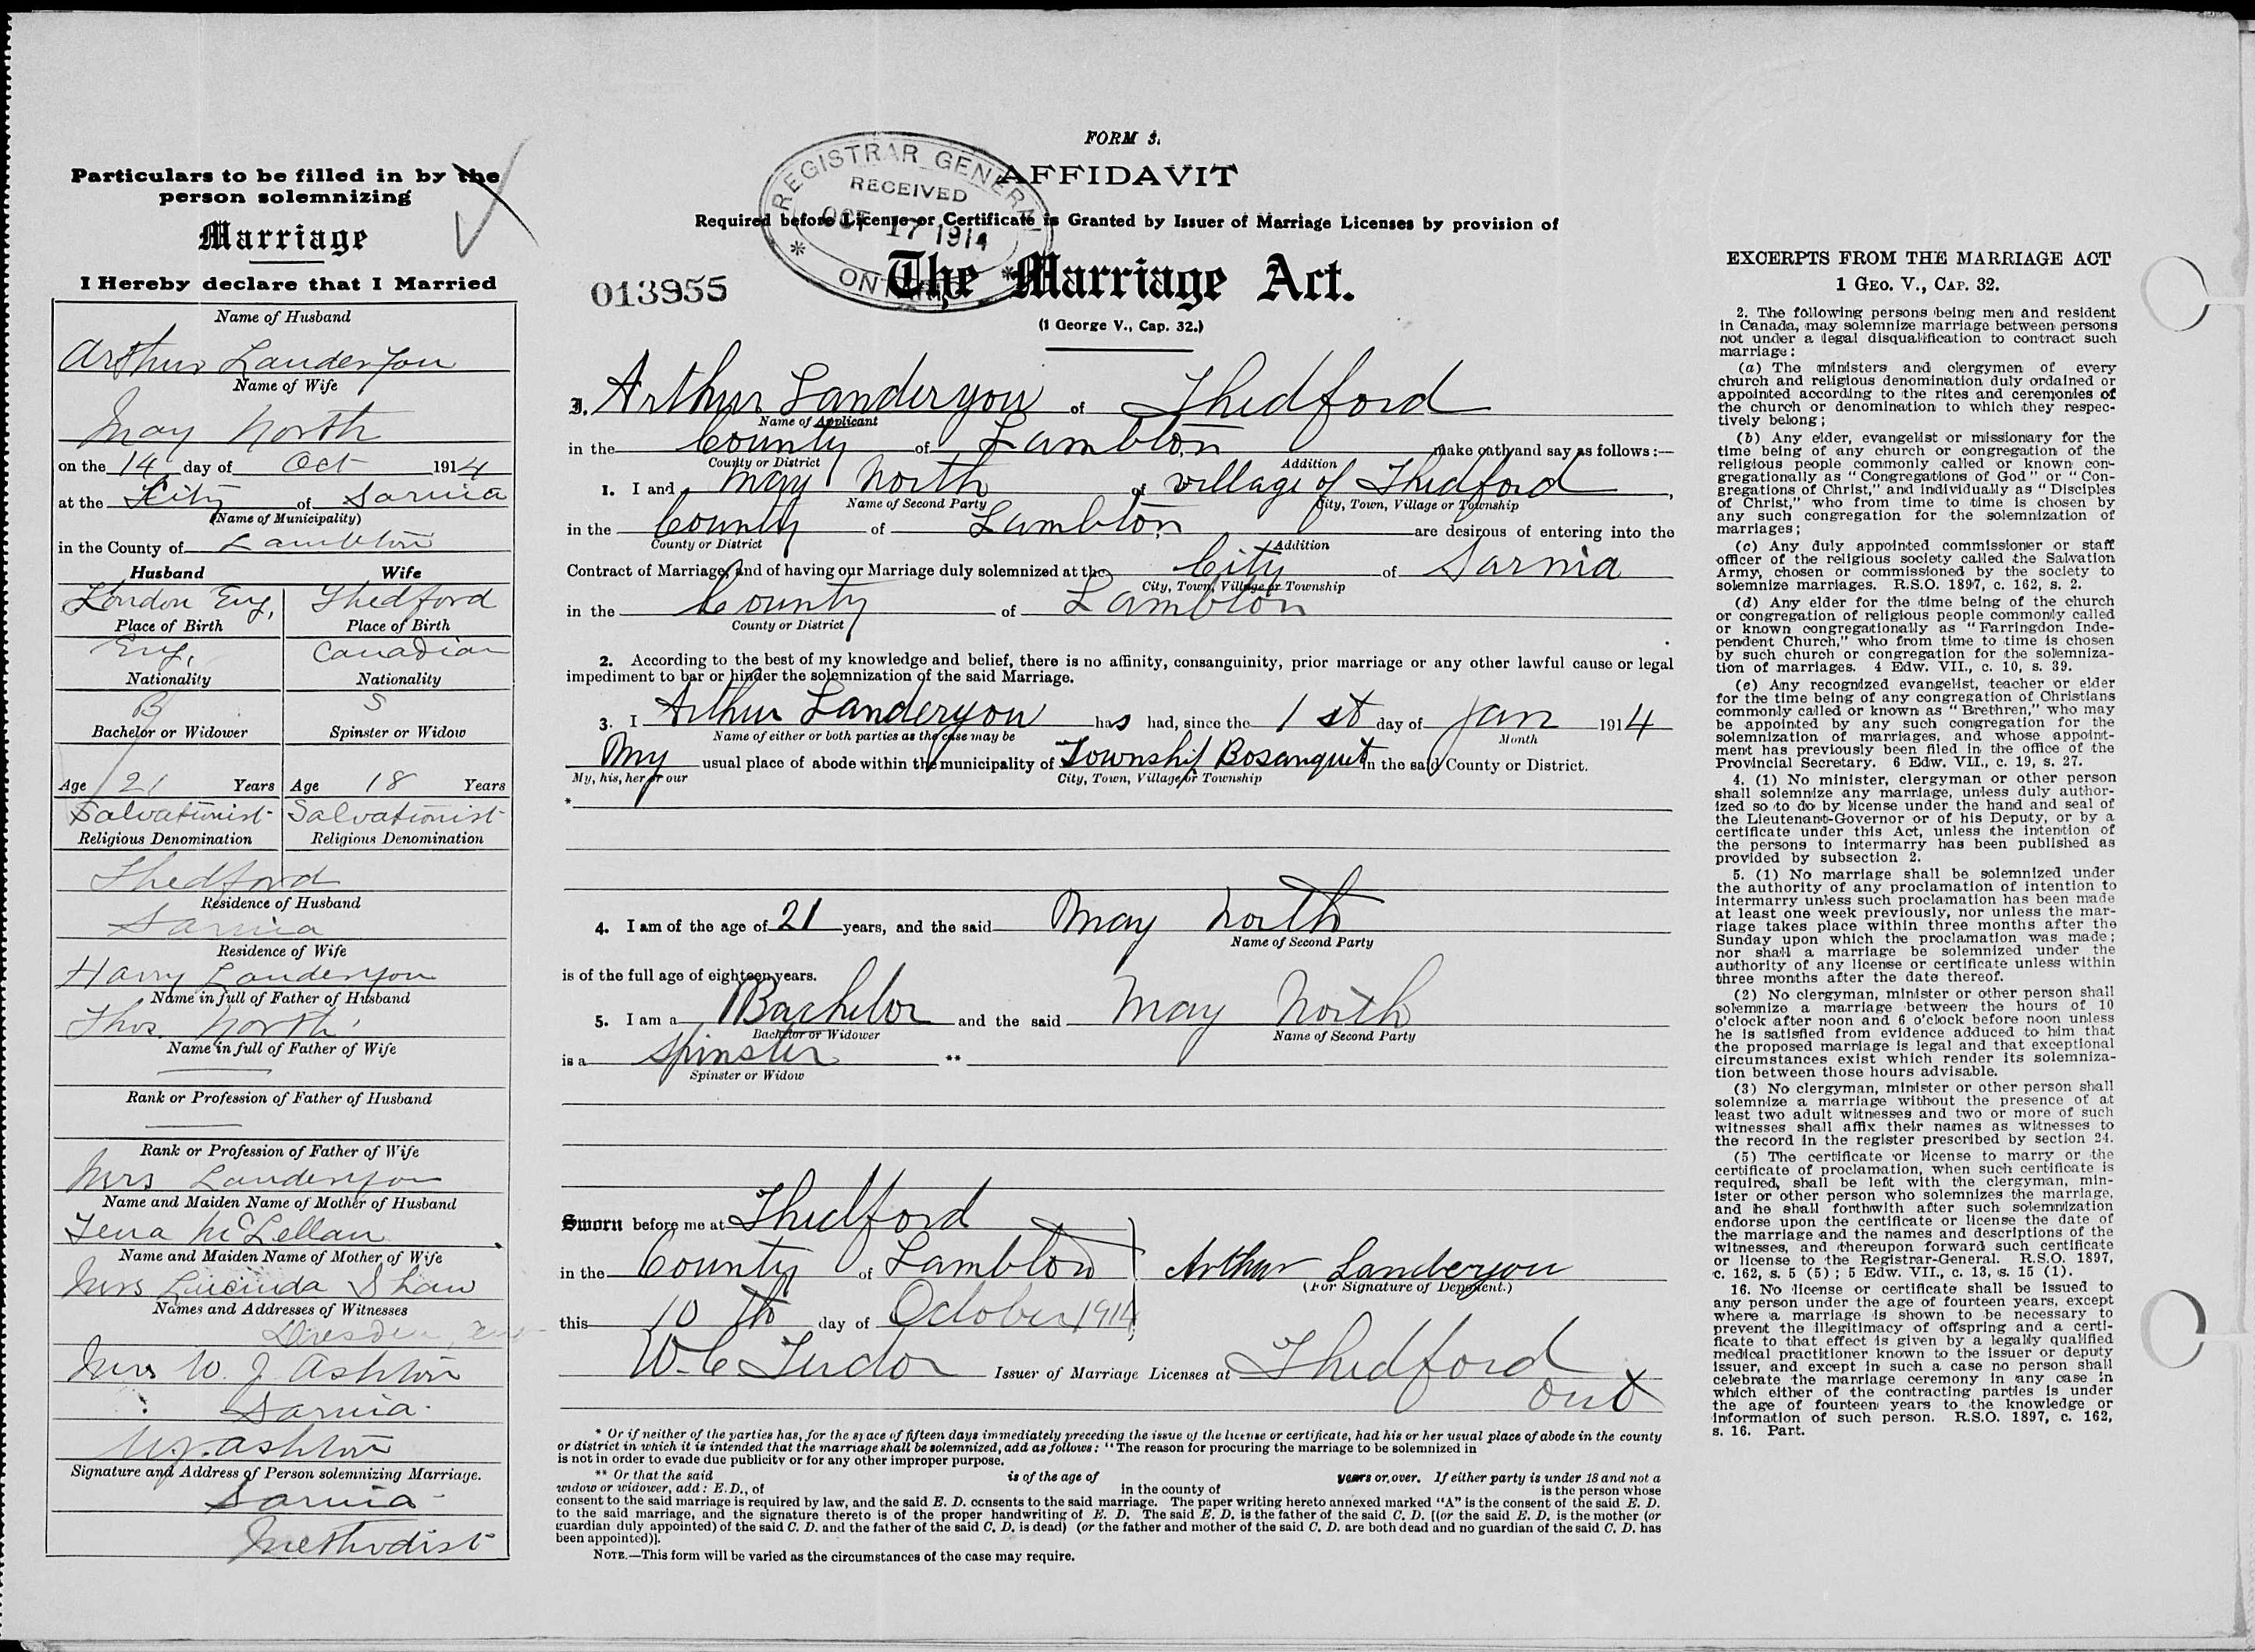 Particulars to be filled in by the
person solemnizing
Marriage
I Hereby declare that I Married
Name of Husband
Arthur Landeryou
Name of Wife
May North
on the 14 day of Oct 1914
at the City of Sarnia
(Name of Municipality)
in the County of Lambton
Husband Wife
London Eng, Thedford
Place of Birth Place of Birth
Eng, Canadian
Nationality Nationality
B S
Bachelor or Widower Spinster or Widow
Age 21 Years Age 18 Years
Salvationist Salvationist
Religious Denomination Religious Denomination
Thedford
Residence of Husband
Sarnia
Residence of Wife
Harry Landeryou
Name in full of Father of Husband
Thos. North
Name in full of Father of Wife
Rank or Profession of Father of Husband
Rank or Profession of Father of Wife
Mrs Landeryou
Name and Maiden Name of Mother of Husband
Tena McLellan
Name and Maiden Name of Mother of Wife
Mrs Lucinda Shaw
Names and Addresses of Witnesses
Dresden,
Mrs W. J. Ashton
Sarnia.
W. J. Ashton
Signature and Address of Person solemnizing Marriage.
Sarnia
Methodist
FORM 3.
AFFIDAVIT
REGISTRAR GENERAL
RECEIVED
OCT 17 1914
ONTARIO
Required before License or Certificate is Granted by Issuer of Marriage Licenses by provision of
013955
The Marriage Act.
(1 George V., Cap. 32.)
I. Arthur Landeryou of Thedford
Name of Applicant
in the County of Lambton make oath and say as follows:—
County or District Addition
1. I and May North of village of Thedford,
Name of Second Party City, Town, Village or Township
in the County of Lambton are desirous of entering into the
County or District Addition
Contract of Marriage, and of having our Marriage duly solemnized at the City of Sarnia
City, Town, Village or Township
in the County of Lambton
County or District
2. According to the best of my knowledge and belief, there is no affinity, consanguinity, prior marriage or any other lawful cause or legal
impediment to bar or hinder the solemnization of the said Marriage.
3. I Arthur Landeryou has had, since the 1st day of Jan 1914
Name of either or both parties as the case may be Month
My usual place of abode within the municipality of Township Bosanquet in the said County or District.
My, his, her or our City, Town, Village or Township
*
4. I am of the age of 21 years, and the said May North
Name of Second Party
is of the full age of eighteen years.
5. I am a Bachelor and the said May North
Bachelor or Widower Name of Second Party
is a Spinster **
Spinster or Widow
Sworn before me at Thedford
in the County of Lambton Arthur Landeryou
(For Signature of Deponent.)
this 10th day of October 1914
W. C. Tudor Issuer of Marriage Licenses at Thedford
Ont
* Or if neither of the parties has, for the space of fifteen days immediately preceding the issue of the license or certificate, had his or her usual place of abode in the county
or district in which it is intended that the marriage shall be solemnized, add as follows: "The reason for procuring the marriage to be solemnized in
is not in order to evade due publicity or for any other improper purpose.
** Or that the said is of the age of years or over. If either party is under 18 and not a
widow or widower, add: E.D., of in the county of is the person whose
consent to the said marriage is required by law, and the said E. D. consents to the said marriage. The paper writing hereto annexed marked "A" is the consent of the said E. D.
to the said marriage, and the signature thereto is of the proper handwriting of E. D. The said E. D. is the father of the said C. D. [(or the said E. D. is the mother (or
guardian duly appointed) of the said C. D. and the father of the said C. D. is dead) (or the father and mother of the said C. D. are both dead and no guardian of the said C. D. has
been appointed)].
NOTE.—This form will be varied as the circumstances of the case may require.
EXCERPTS FROM THE MARRIAGE ACT
1 GEO. V., CAP. 32.
2. The following persons being men and resident
in Canada, may solemnize marriage between persons
not under a legal disqualification to contract such
marriage:
(a) The ministers and clergymen of every
church and religious denomination duly ordained or
appointed according to the rites and ceremonies of
the church or denomination to which they respec-
tively belong;
(b) Any elder, evangelist or missionary for the
time being of any church or congregation of the
religious people commonly called or known con-
gregationally as "Congregations of God" or "Con-
gregations of Christ," and individually as "Disciples
of Christ," who from time to time is chosen by
any such congregation for the solemnization of
marriages;
(c) Any duly appointed commissioner or staff
officer of the religious society called the Salvation
Army, chosen or commissioned by the society to
solemnize marriages. R.S.O. 1897, c. 162, s. 2.
(d) Any elder for the time being of the church
or congregation of religious people commonly called
or known congregationally as "Farringdon Inde-
pendent Church," who from time to time is chosen
by such church or congregation for the solemniza-
tion of marriages. 4 Edw. VII., c. 10, s. 39.
(e) Any recognized evangelist, teacher or elder
for the time being of any congregation of Christians
commonly called or known as "Brethren," who may
be appointed by any such congregation for the
solemnization of marriages, and whose appoint-
ment has previously been filed in the office of the
Provincial Secretary. 6 Edw. VII., c. 19, s. 27.
4. (1) No minister, clergyman or other person
shall solemnize any marriage, unless duly author-
ized so to do by license under the hand and seal of
the Lieutenant-Governor or of his Deputy, or by a
certificate under this Act, unless the intention of
the persons to intermarry has been published as
provided by subsection 2.
5. (1) No marriage shall be solemnized under
the authority of any proclamation of intention to
intermarry unless such proclamation has been made
at least one week previously, nor unless the mar-
riage takes place within three months after the
Sunday upon which the proclamation was made;
nor shall a marriage be solemnized under the
authority of any license or certificate unless within
three months after the date thereof.
(2) No clergyman, minister or other person shall
solemnize a marriage between the hours of 10
o'clock after noon and 6 o'clock before noon unless
he is satisfied from evidence adduced to him that
the proposed marriage is legal and that exceptional
circumstances exist which render its solemniza-
tion between those hours advisable.
(3) No clergyman, minister or other person shall
solemnize a marriage without the presence of at
least two adult witnesses and two or more of such
witnesses shall affix their names as witnesses to
the record in the register prescribed by section 24.
(5) The certificate or license to marry or the
certificate of proclamation, when such certificate is
required, shall be left with the clergyman, min-
ister or other person who solemnizes the marriage,
and he shall forthwith after such solemnization
endorse upon the certificate or license the date of
the marriage and the names and descriptions of the
witnesses, and thereupon forward such certificate
or license to the Registrar-General. R.S.O. 1897,
c. 162, s. 5 (5); 5 Edw. VII., c. 13, s. 15 (1).
16. No license or certificate shall be issued to
any person under the age of fourteen years, except
where a marriage is shown to be necessary to
prevent the illegitimacy of offspring and a certi-
ficate to that effect is given by a legally qualified
medical practitioner known to the issuer or deputy
issuer, and except in such a case no person shall
celebrate the marriage ceremony in any case in
which either of the contracting parties is under
the age of fourteen years to the knowledge or
information of such person. R.S.O. 1897, c. 162,
s. 16. Part.